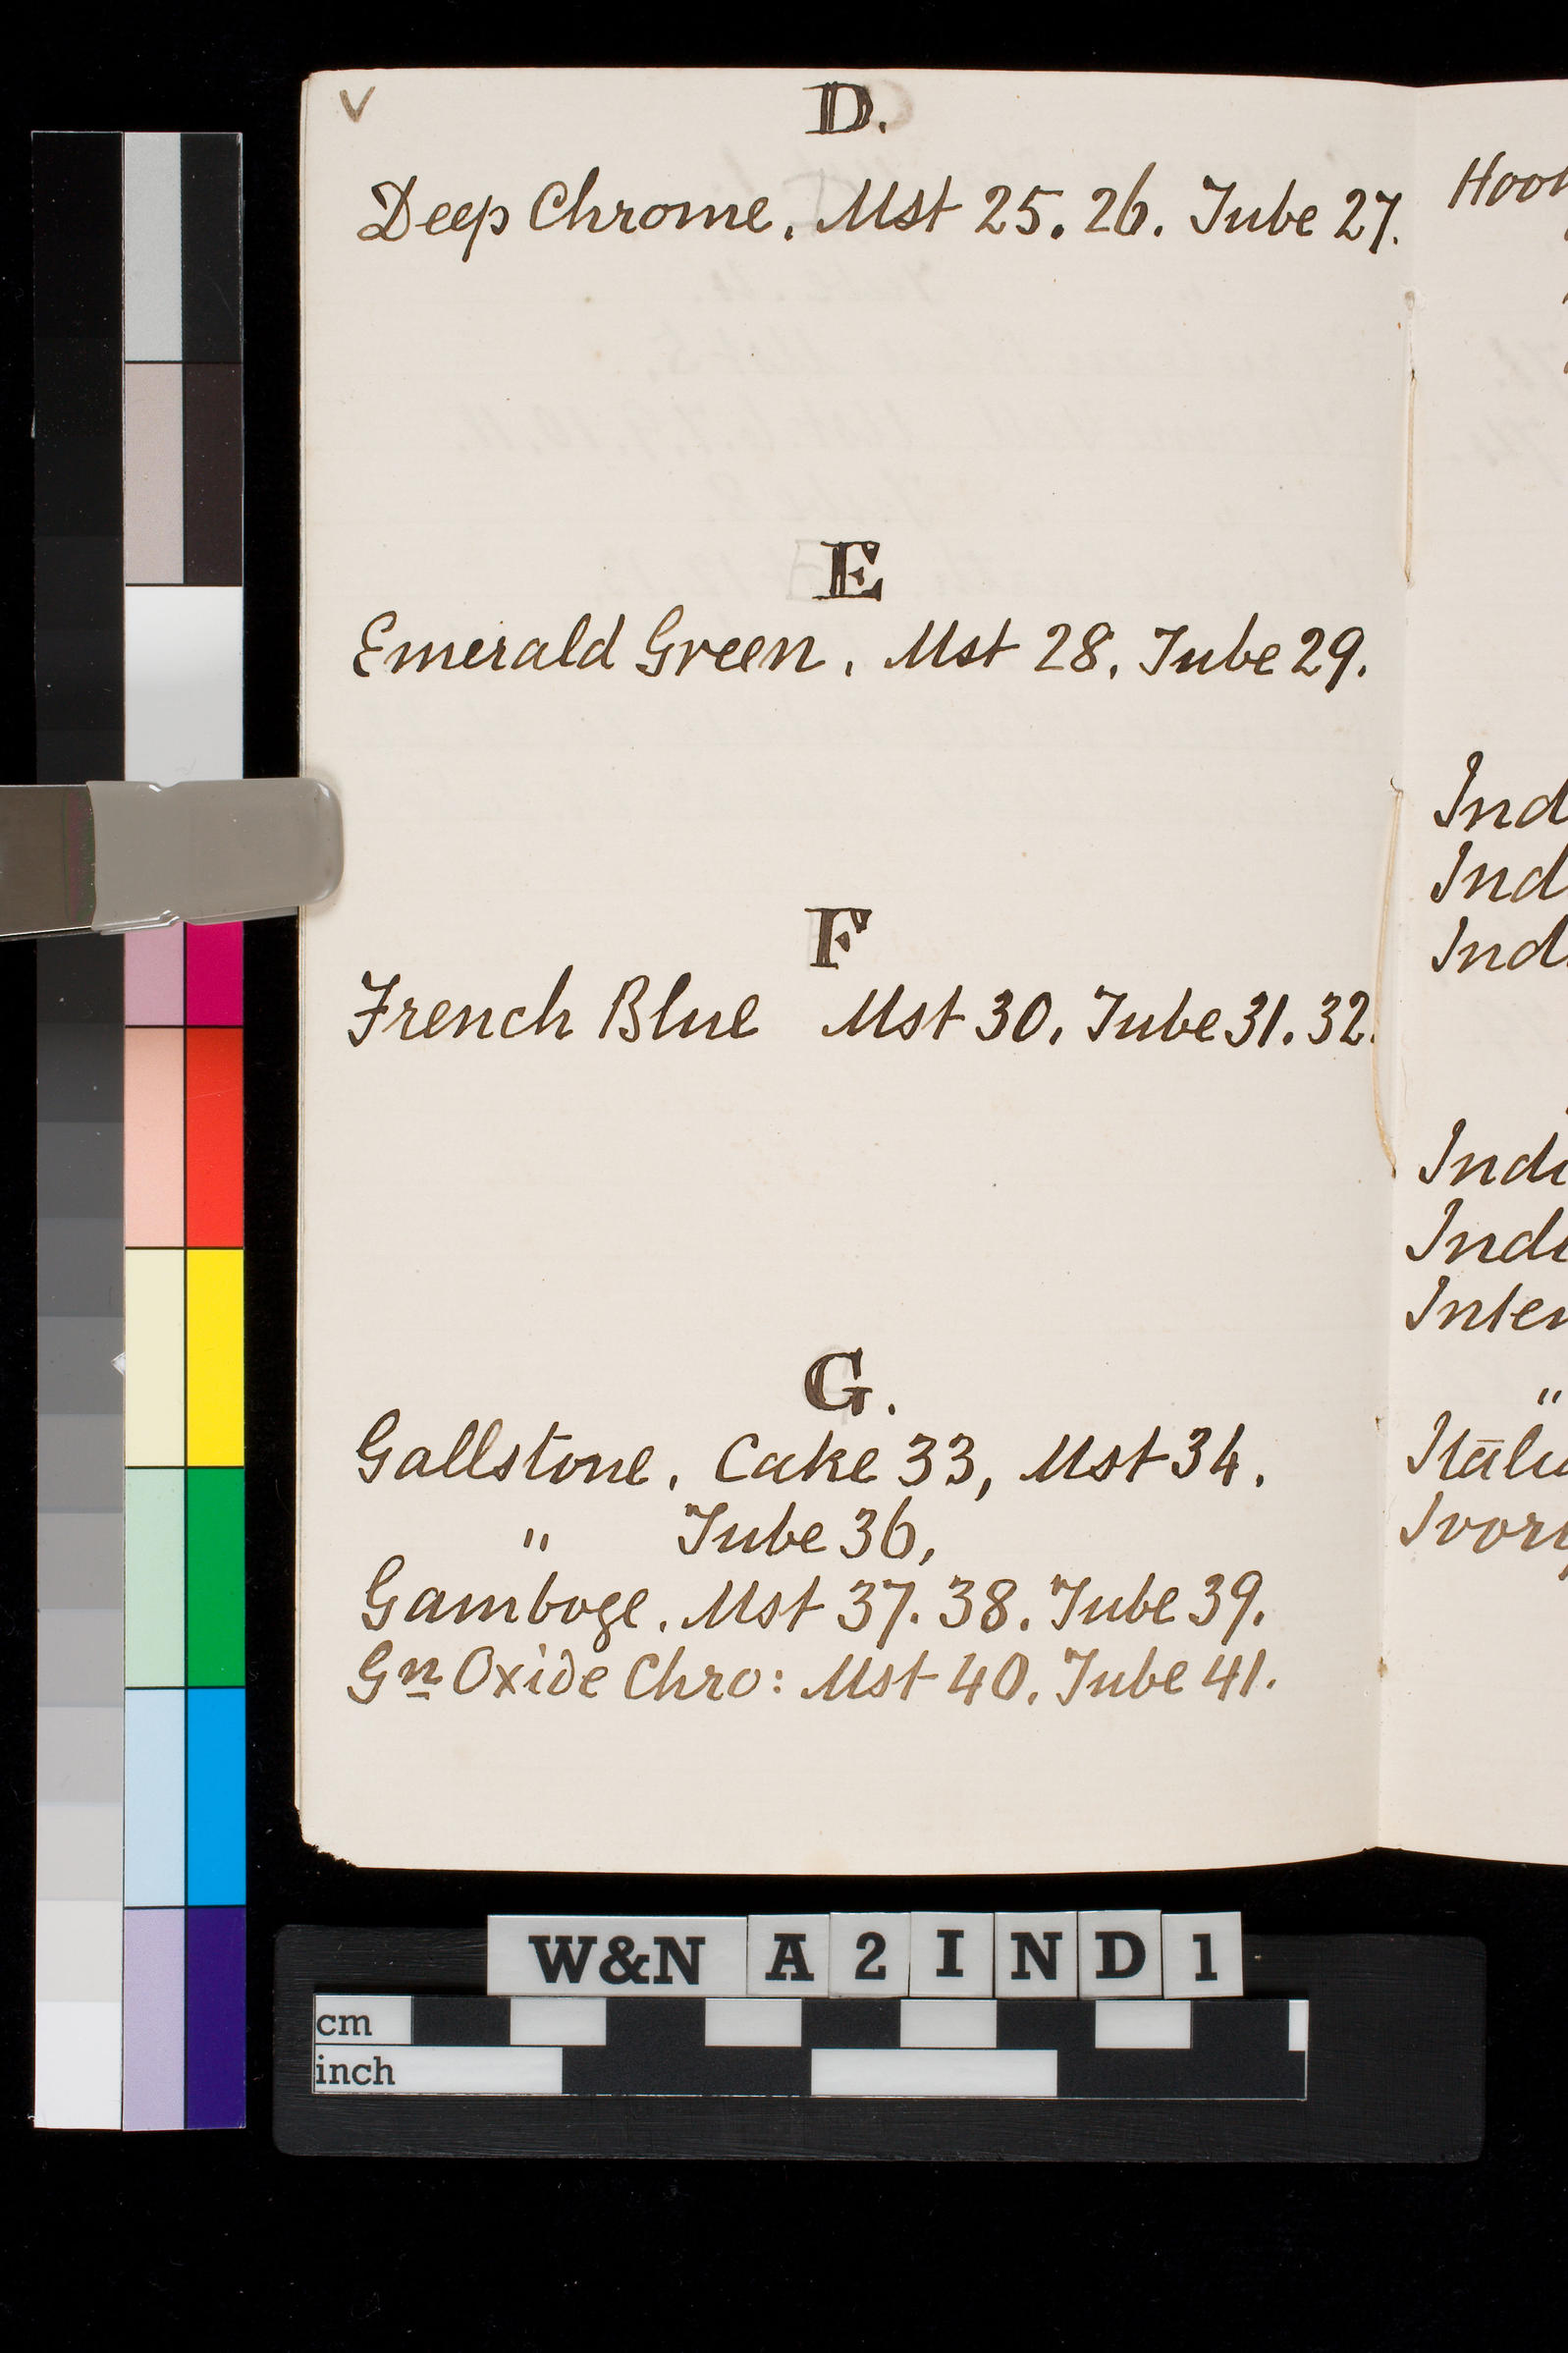 V
D.
Deep Chrome. Mst 25. 26. Tube 27.
E
Emerald Green. Mst 28. Tube 29.
F
French Blue Mst 30. Tube 31. 32.
G.
Gallstone. Cake 33, Mst 34.
" Tube 36,
Gamboge. Mst 37. 38. Tube 39.
Gn Oxide Chro: Mst 40. Tube 41.
Hoo
Ind
Ind
Ind
Indi
Indi
Inter
"
Ital
Ivor
W&N A 2 I N D 1
cm
inch